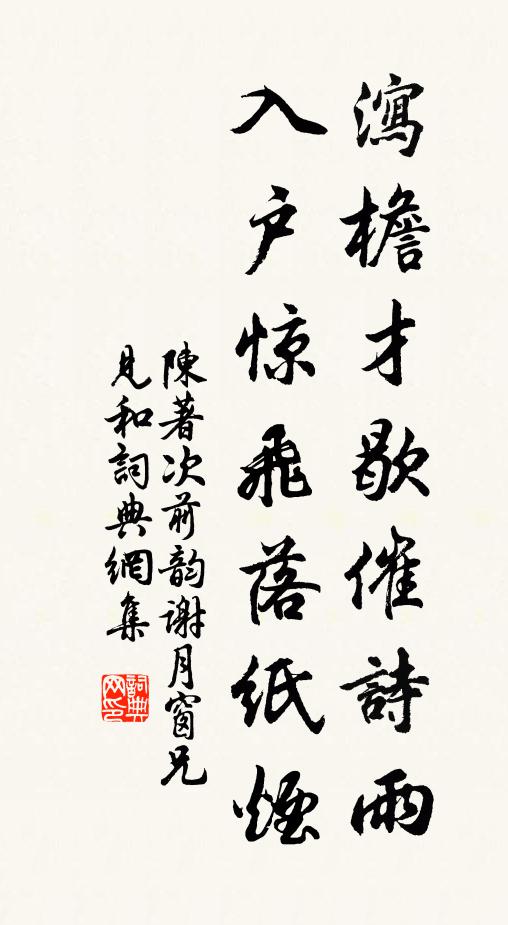 瀉檐才歇催詩雨
入户惊飛落紙煙
陳著次前韵謝月窗兄
見和詞典網集
詞典
网印